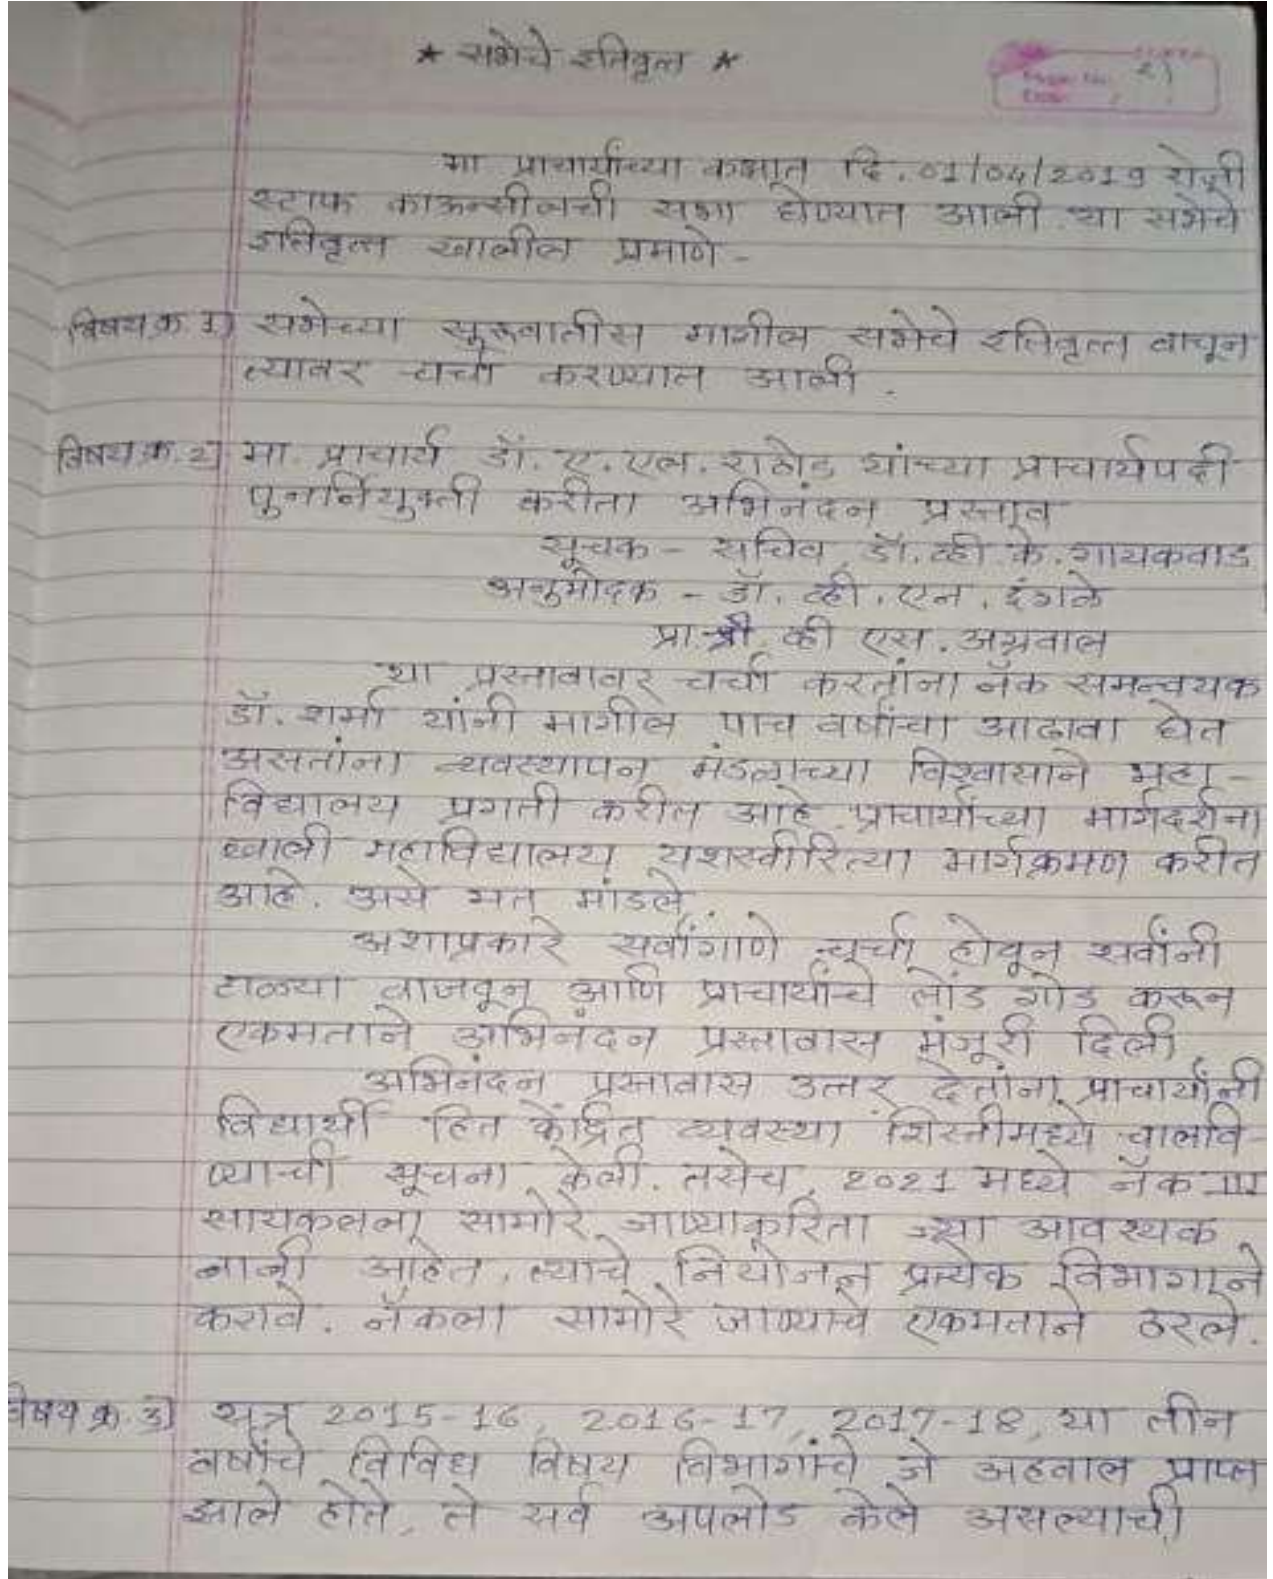 * सभेचे इतिवृत्त *
Page No. 21
Date: / /
मा प्राचार्यांच्या कक्षात दि. 01/04/2019 रोजी
स्टाफ काऊन्सीलची सभा घेण्यात आली. या सभेचे
इतिवृत्त खालील प्रमाणे -
विषय क्र. 1) सभेच्या सुरूवातीस मागील सभेचे इतिवृत्त वाचून
त्यावर चर्चा करण्यात आली.
विषय क्र. 2) मा. प्राचार्य डॉ. ए. एल. राठोड यांच्या प्राचार्यपदी
पुनर्नियुक्ती करीता अभिनंदन प्रस्ताव
सूचक - सचिव, डॉ. व्ही. के. गायकवाड
अनुमोदक - डॉ. व्ही. एन. इंगळे
प्रा. श्री. व्ही एस. अग्रवाल
या प्रस्तावावर चर्चा करतांना नॅक समन्वयक
डॉ. शर्मा यांनी मागील पाच वर्षांचा आढावा घेत
असतांना व्यवस्थापन मंडळाच्या विश्वासाने महा-
विद्यालय प्रगती करीत आहे. प्राचार्यांच्या मार्गदर्शना
खाली महाविद्यालय यशस्वीरित्या मार्गक्रमण करीत
आहे. असे मत मांडले.
अशाप्रकारे सर्वांगाणे चर्चा होवून सर्वांनी
टाळ्या वाजवून आणि प्राचार्यांचे तोंड गोड करून
एकमताने अभिनंदन प्रस्तावास मंजूरी दिली.
अभिनंदन प्रस्तावास उत्तर देतांना प्राचार्यांनी
विद्यार्थी हित केंद्रित व्यवस्था शिस्तीमध्ये चालवि-
ण्याची सूचना केली. तसेच, 2021 मध्ये नॅक III
सायकलला सामोरे जाण्याकरिता ज्या आवश्यक
बाबी आहेत, त्याचे नियोजन प्रत्येक विभागाने
करावे. नॅकला सामोरे जाण्याचे एकमताने ठरले.
विषय क्र. 3) सत्र 2015-16, 2016-17, 2017-18, या तीन
वर्षांचे विविध विषय विभागांचे जे अहवाल प्राप्त
झाले होते, ते सर्व अपलोड केले असल्याची